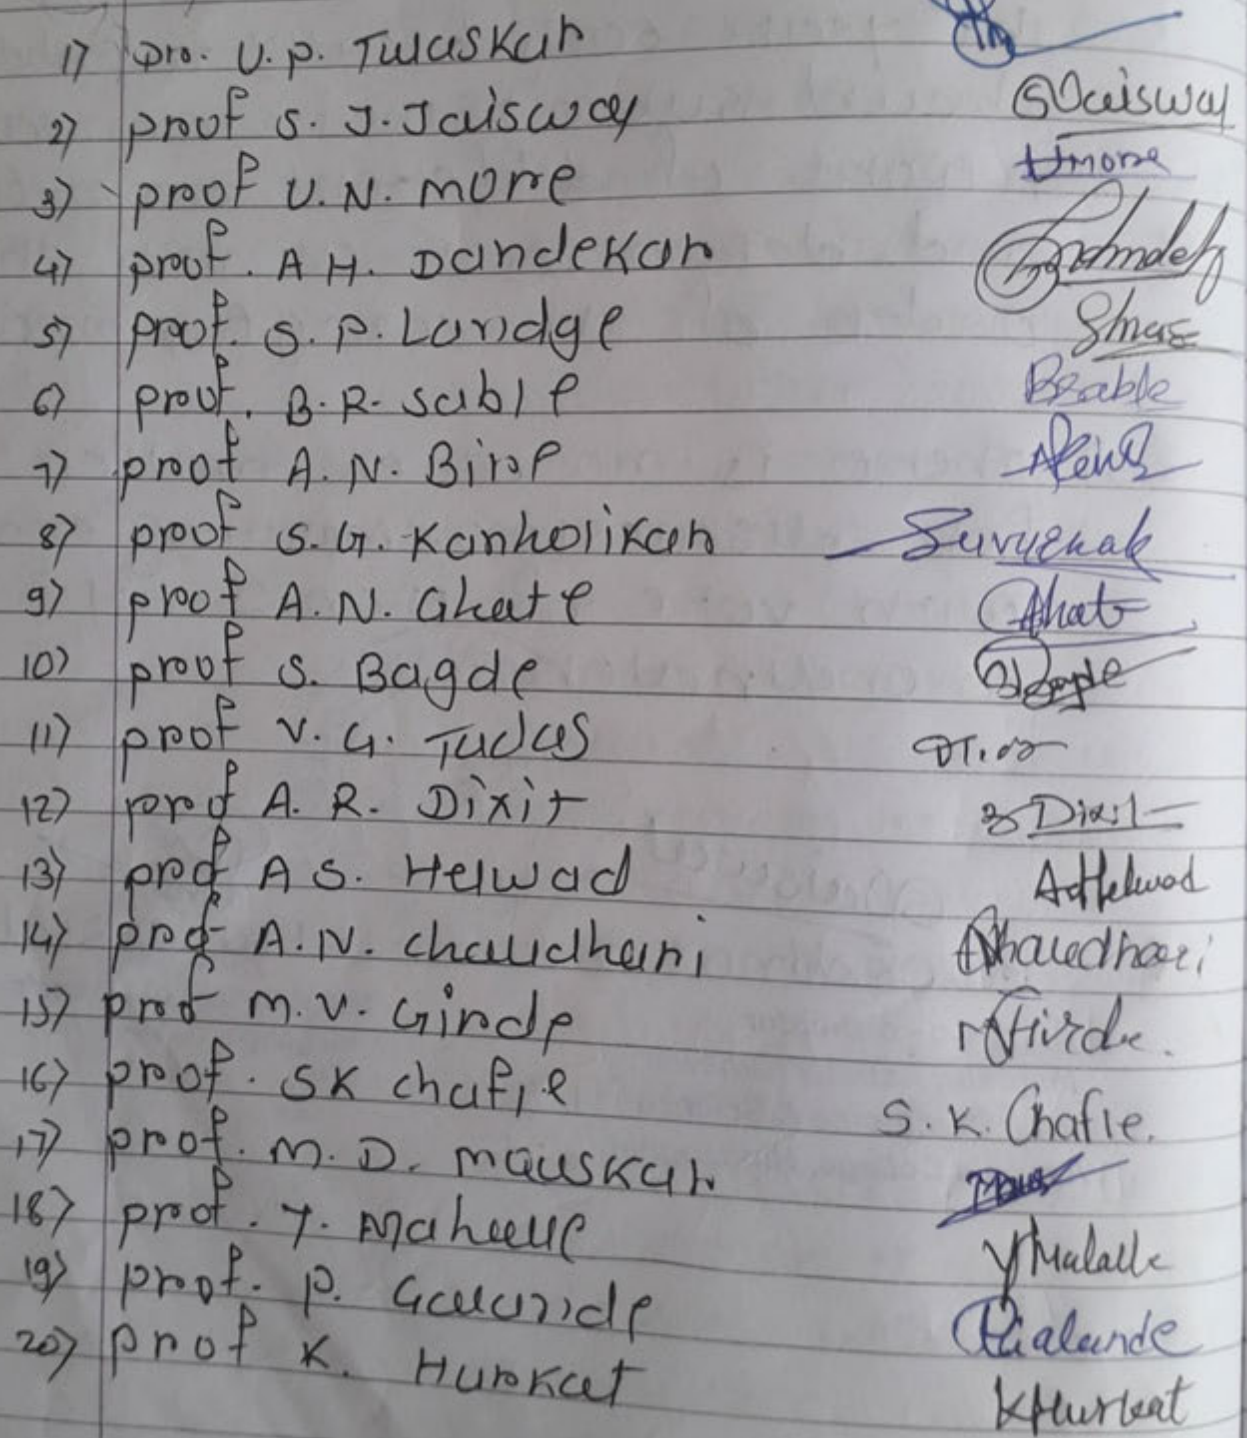 1) Dro. U. P. Tulaskar
2) prof S. J. Jaiswal SJaiswal
3) prof U. N. more Umore
4) prof. A H. Dandekar
5) prof. S. P. Landge
6) prof. B. R. sable BSable
7) prof A. N. Bire
8) prof S. G. Kanholikar
9) prof A. N. Ghate Ghate
10) prof S. Bagde
11) prof V. G. Tudas
12) prof A. R. Dixit Dixit
13) prof A S. Helwad AHelwad
14) prof A. N. chaudhari AChaudhari
15) prof M. V. Girde Girde.
16) prof. SK chafle S. K. Chafle.
17) prof. M. D. mauskar
18) prof. Y. Mahalle YMahalle
19) prof. P. Gawande
20) prof K. Hurkat KHurkat